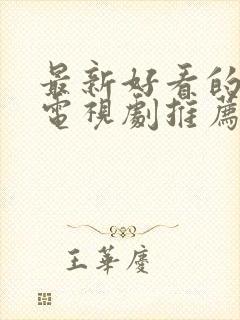 最新好看的
電視劇推薦
王華慶